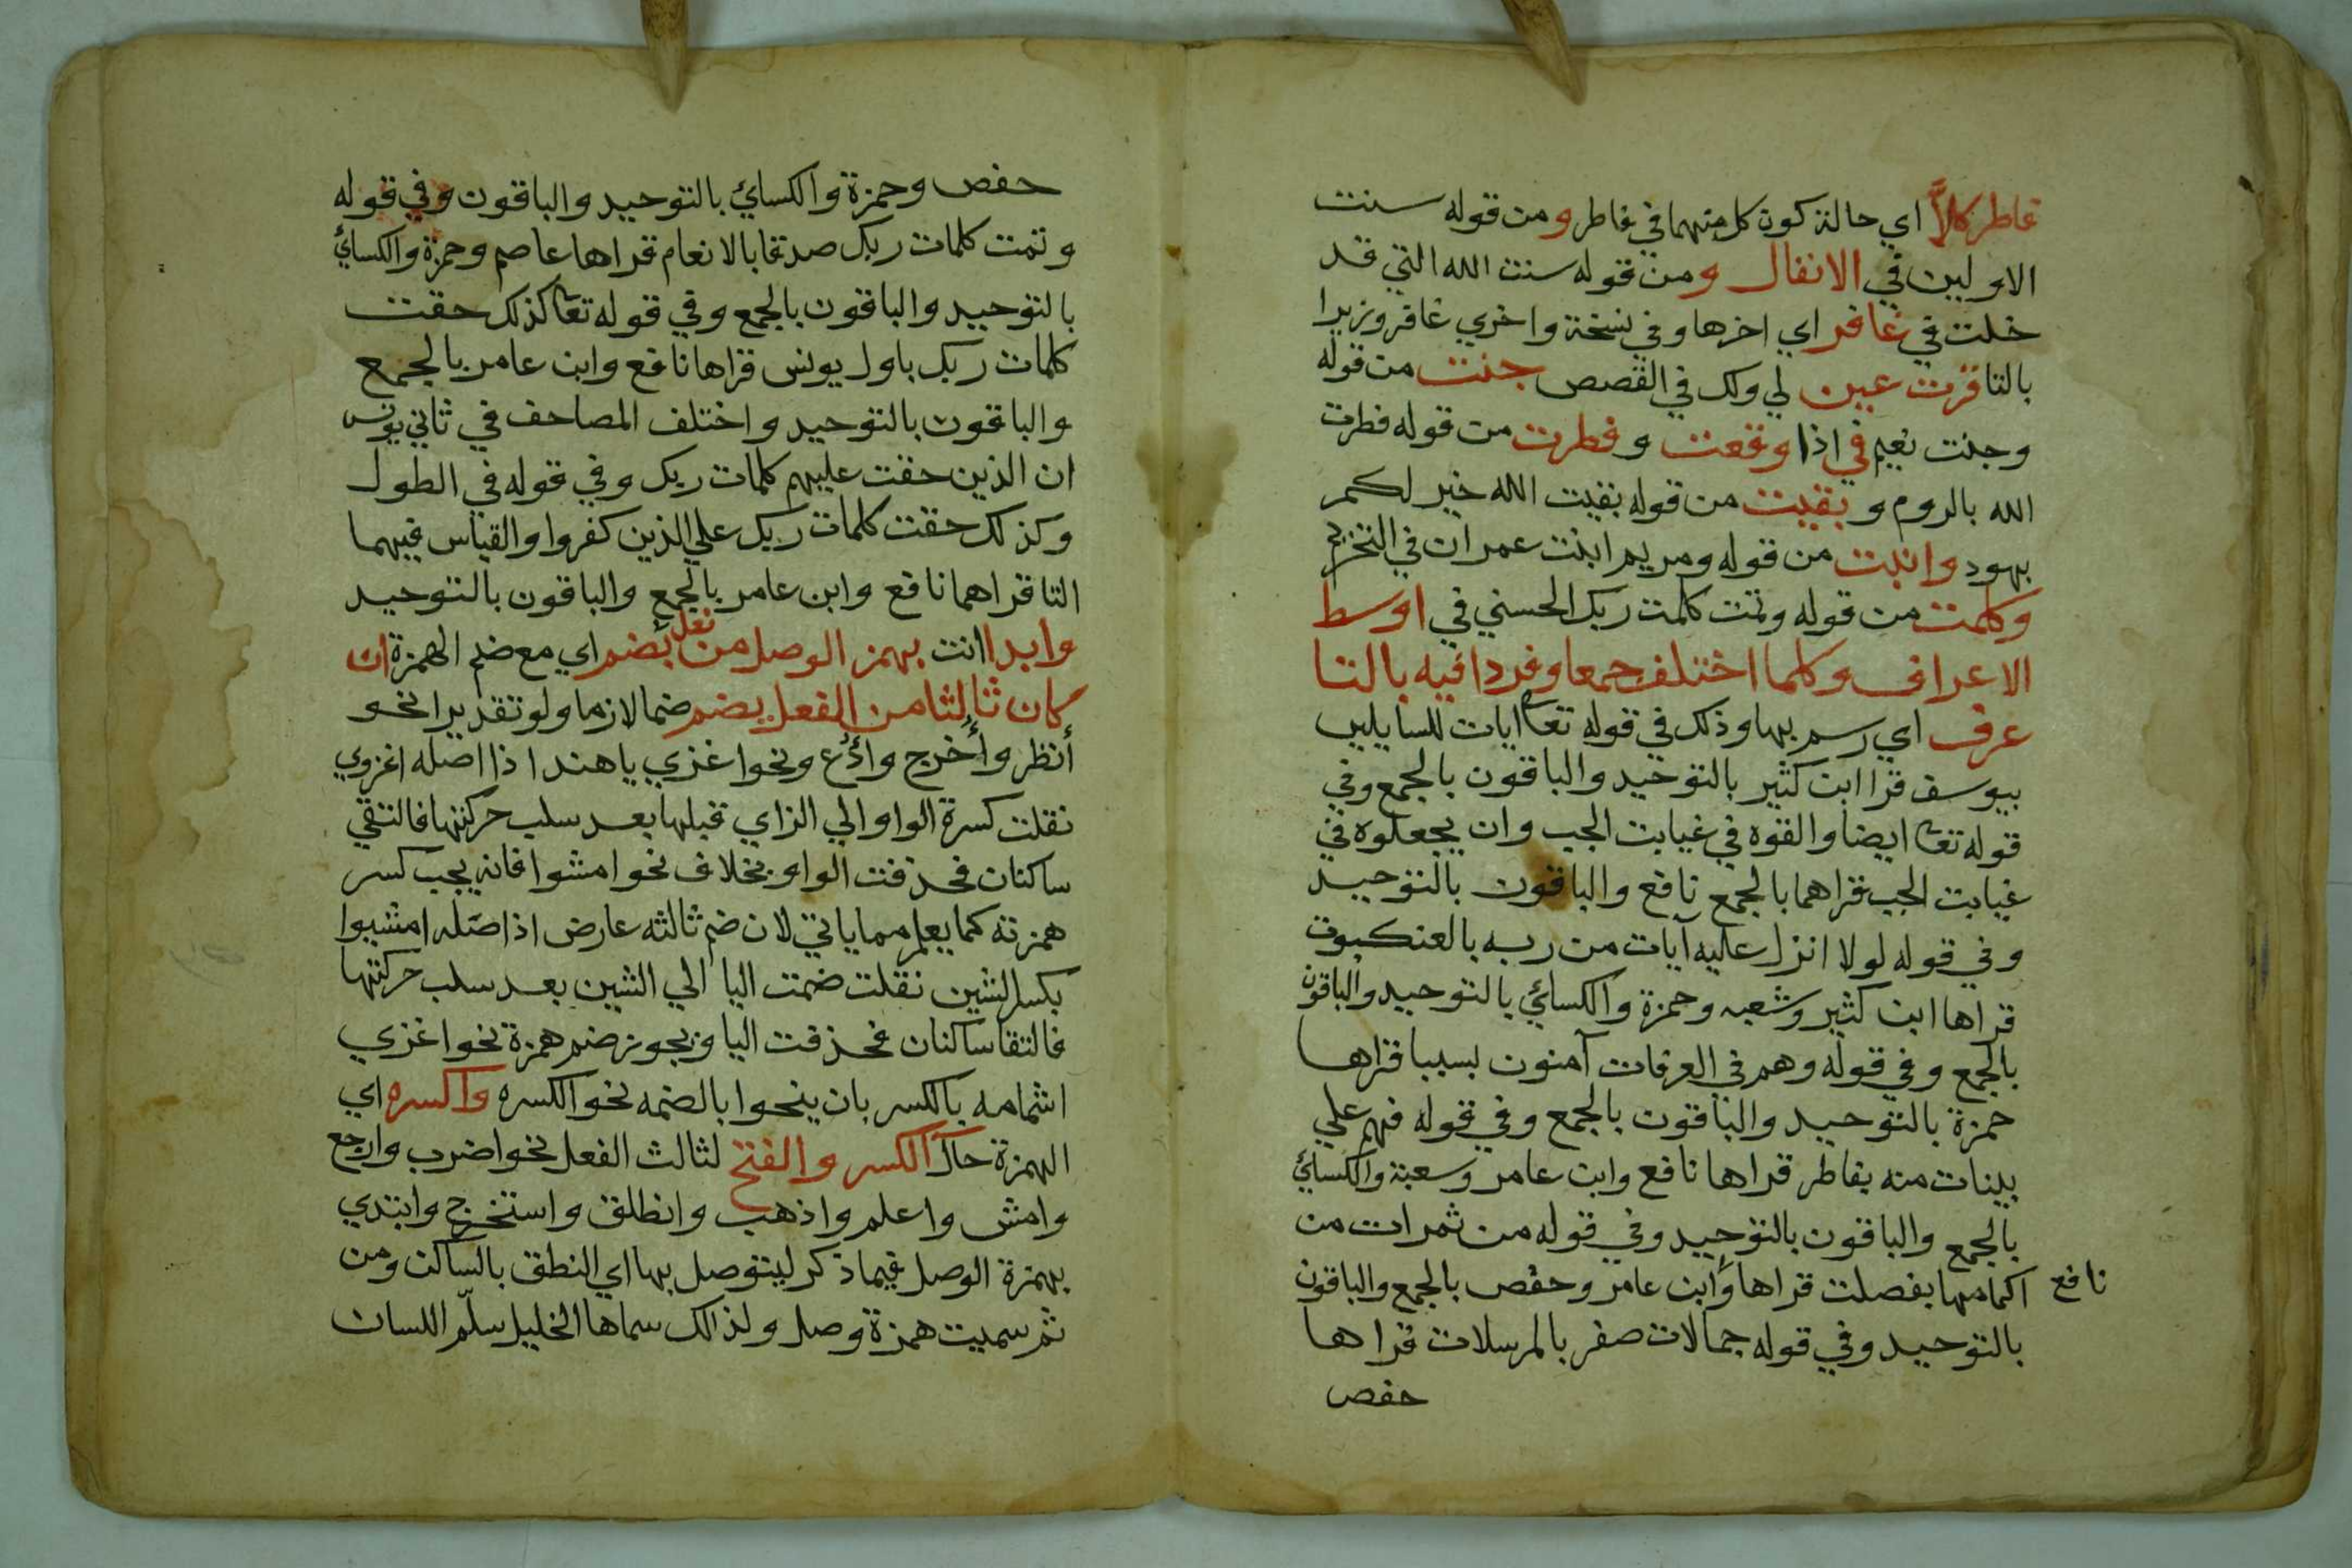 فاطر كلاًّ اي حالة كون كل منهما في فاطر و من قوله سنت
الاولين في الانفال و من قوله سنت الله التي قد
خلت في غافر اي اخرها وفي نسخة واخري غافر ويزيرا
بالتا قرت عين لي ولك في القصص جنت من قوله
وجنت نعيم في اذا وقعت و فطرت من قوله فطرت
الله بالروم و بقيت من قوله بقيت الله خير لكم
بهود وابنت من قوله ومريم ابنت عمران في التحريم
وكلمت من قوله وتمت كلمت ربك الحسني في اوسط
الاعراف وكلما اختلف جمعا وفردا فيه بالتا
عرف اي رسم بها وذلك في قوله تعا ايات للسايلين
بيوسف قرا ابن كثير بالتوحيد والباقون بالجمع وفي
قوله تعا ايضا والقوه في غيابت الجب وان يجعلوه في
غيابت الجب قراهما بالجمع نافع والباقون بالتوحيد
وفي قوله لولا انزل عليه آيات من ربه بالعنكبوت
قراها ابن كثير وشعبه وحمزة والكسائي بالتوحيد والباقون
بالجمع وفي قوله وهم في الغرفات آمنون بسبا قراها
حمزة بالتوحيد والباقون بالجمع وفي قوله فهم علي
بينات منه بفاطر قراها نافع وابن عامر وسعبة والكسائي
بالجمع والباقون بالتوحيد وفي قوله من ثمرات من
اكمامها بفصلت قراها وابن عامر وحفص بالجمع والباقون
نافع
بالتوحيد وفي قوله جمالات صفر بالمرسلات قراها
حفص
حفص وحمزة والكسائي بالتوحيد والباقون وفي قوله
وتمت كلمات ربك صدقا بالانعام قراها عاصم وحمزة والكسائي
بالتوحيد والباقون بالجمع وفي قوله تعا كذلك حقت
كلمات ربك باول يونس قراها نافع وابن عامر بالجمع
والباقون بالتوحيد واختلف المصاحف في ثاني يونس
ان الذين حقت عليهم كلمات ربك وفي قوله في الطول
وكذلك حقت كلمات ربك علي الذين كفروا والقياس فيهما
التا قراهما نافع وابن عامر بالجمع والباقون بالتوحيد
وابدا انت بهمز الوصل من فعل بضم اي مع ضم الهمزة ان
كان ثالثا من الفعل يضم ضما لازما ولو تقديرا نحو
أنظر وأخرج وادُع ونحوا غزي يا هند اذا اصله اغزوي
نقلت كسرة الواو الي الزاي قبلها بعد سلب حركتها فالتقي
ساكنان فحذفت الواو بخلاف نحوا مشوا فانه يجب كسر
همزته كما يعلم مما ياتي لان ضم ثالثه عارض اذا صله امشيوا
بكسر الشين نقلت ضمت اليا الي الشين بعد سلب حركتها
فالتقا ساكنان فحذفت اليا ويجوز ضم همزة نحوا غزي
اشمامه بالكسر بان ينحوا بالضمه نحو الكسره واكسره اي
الهمزة حال الكسر والفتح لثالث الفعل نحوا ضرب وارجع
وامش واعلم واذهب وانطلق واستخرج وابتدي
بهمزة الوصل فيما ذكر ليتوصل بها اي النطق بالساكن ومن
ثم سميت همزة وصل ولذالك سماها الخليل سلّم اللسان